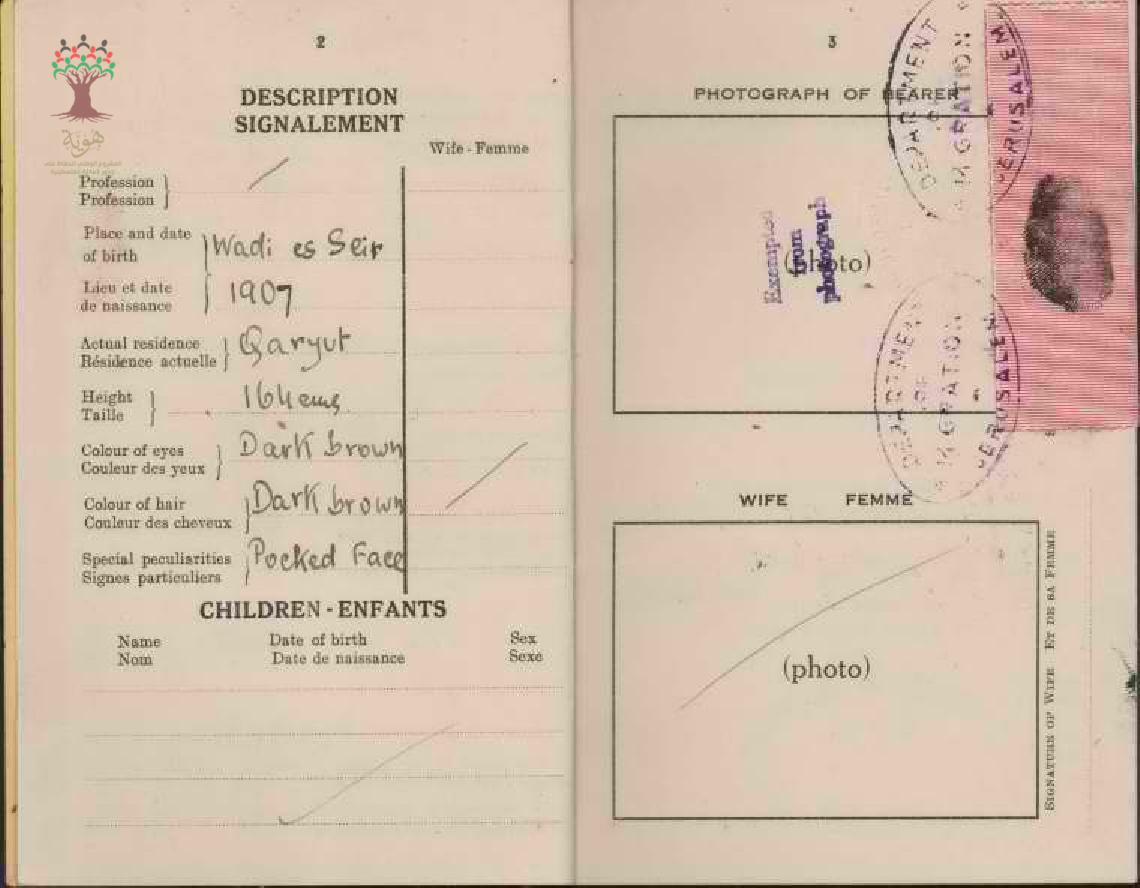 هوية
2
DESCRIPTION
SIGNALEMENT
Wife - Femme
Profession
Profession
Place and date
of birth
Wadi es Seir
Lieu et date
de naissance
1907
Actual residence
Résidence actuelle
Qaryut
Height
Taille
164 cms
Colour of eyes
Couleur des yeux
Dark brown
Colour of hair
Couleur des cheveux
Dark brown
Special peculiarities
Signes particuliers
Pocked Face
CHILDREN - ENFANTS
Name Date of birth Sex
Nom Date de naissance Sexe
3
PHOTOGRAPH OF BEARER
DEPARTMENT
OF
JERUSALEM
Exempted
from
photograph
(photo)
DEPARTMENT
OF
JERUSALEM
WIFE FEMME
(photo)
SIGNATURE OF WIFE ET DE SA FEMME